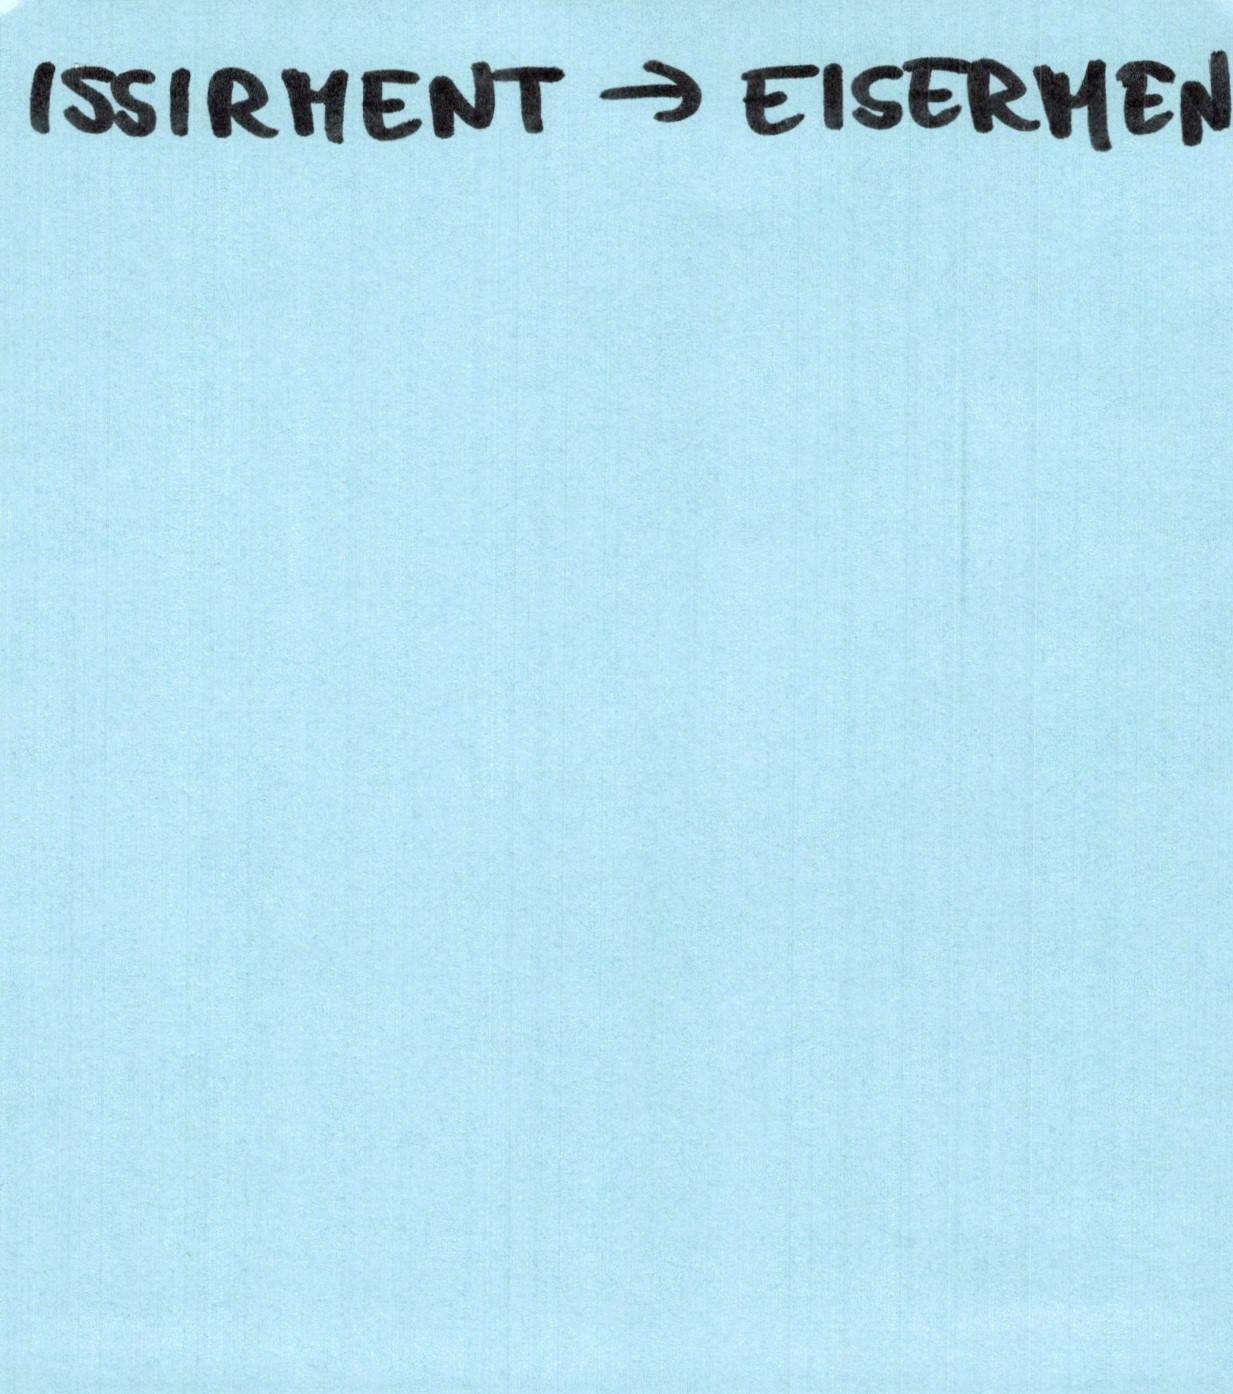 ISSIRMENT → EISERMEN